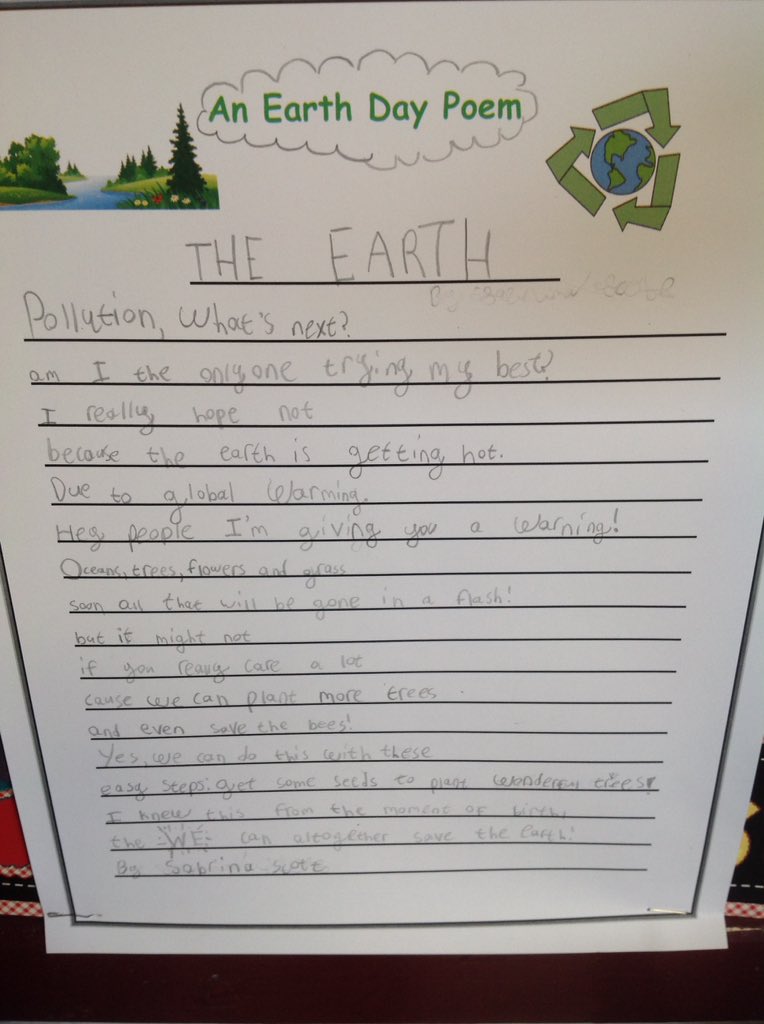 An Earth Day Poem
THE EARTH
By
Pollution, What's next?
am I the only one trying my best?
I really hope not
because the earth is getting hot.
Due to global Warming.
Hey people I'm giving you a warning!
Oceans, trees, flowers and grass
soon all that will be gone in a flash!
but it might not
if you really care a lot
cause we can plant more trees
and even save the bees!
Yes, we can do this with these
easy steps: get some seeds to plant wonderful trees!
I knew this from the moment of birth,
the WE can altogether save the Earth!
By Sabrina Scott